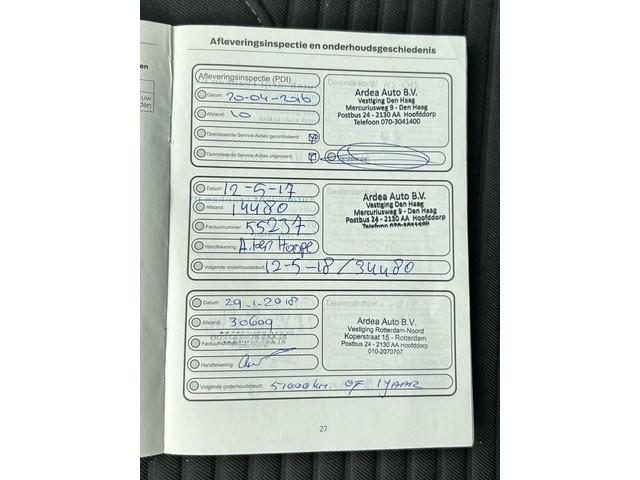 en
uw
den
Afleveringsinspectie en onderhoudsgeschiedenis
Afleveringsinspectie (PDI)
Datum: 20-04-2016
Afstand: 10
Openstaande Service-Acties gecontroleerd:
Openstaande Service-Acties uitgevoerd:
Dealerstempel
Ardea Auto B.V.
Vestiging Den Haag
Mercuriusweg 9 - Den Haag
Postbus 24 - 2130 AA Hoofddorp
Telefoon 070-3041400
Datum: 12-5-17
Afstand: 14480
Factuurnummer: 55237
Handtekening:
Volgende onderhoudsbeurt: 12-5-18 / 34480
Dealerstempel
Ardea Auto B.V.
Vestiging Den Haag
Mercuriusweg 9 - Den Haag
Postbus 24 - 2130 AA Hoofddorp
Telefoon 070-3041400
Datum: 29-1-2018
Afstand: 30609
Handtekening:
Volgende onderhoudsbeurt: 51000km. OF 1 JAAR
Dealerstempel
Ardea Auto B.V.
Vestiging Rotterdam-Noord
Koperstraat 15 - Rotterdam
Postbus 24 - 2130 AA Hoofddorp
010-2070707
27